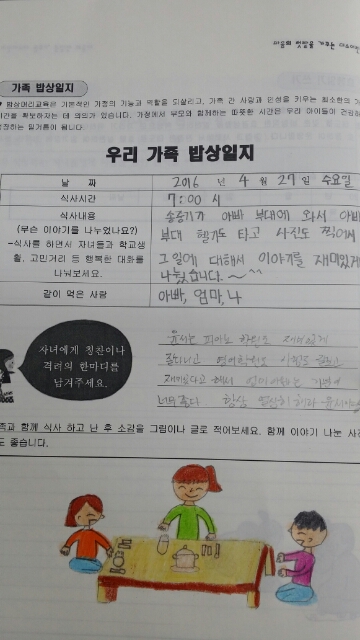 마음의 텃밭을 가꾸는
가족 밥상일지
밥상머리교육은 기본적인 가정의 기능과 역할을 되살리고, 가족 간 사랑과 인성을 키우는 최소한의
시간을 확보하자는 데 의의가 있습니다. 가정에서 부모와 함께하는 따뜻한 시간은 우리 아이들이 건강하
성장하는 밑거름이 됩니다.
우리 가족 밥상일지
날 짜 2016 년 4 월 27 일 수요일
식사시간 7:00 시
식사내용
(무슨 이야기를 나누었나요?)
-식사를 하면서 자녀들과 학교생
활, 고민거리 등 행복한 대화를
나눠보세요.
송중기가 아빠 부대에 와서 아빠
부대 헬기도 타고 사진도 찍어서
그 일에 대해서 이야기를 재미있게
나눴습니다.~^^
같이 먹은 사람 아빠, 엄마, 나
자녀에게 칭찬이나
격려의 한마디를
남겨주세요.
피아노 재미있게
엄마아빠는
너무 좋다 항상 열심히
함께 식사 하고 난 후 소감을 그림이나 글로 적어보세요. 함께 이야기 나눈 사진
도 좋습니다.